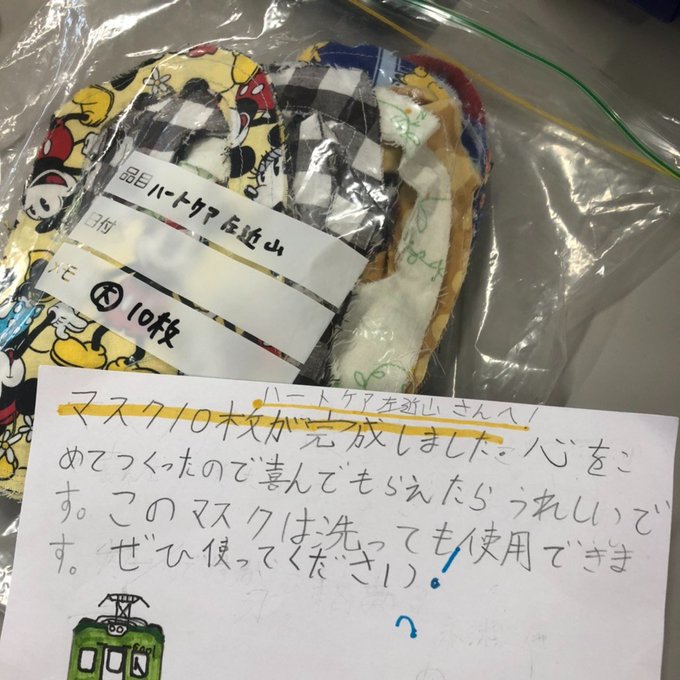 品目 ハートケア左近山
日付
メモ
大 10枚
ハートケア左近山さんへ!
マスク10枚が完成しました。心をこ
めてつくったので喜んでもらえたらうれしいで
す。このマスクは洗っても使用できま
す。ぜひ使ってください!